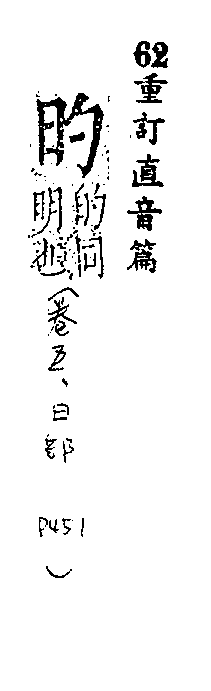 62重訂直音篇
昀
的同
明也
（卷五、日部 P451）